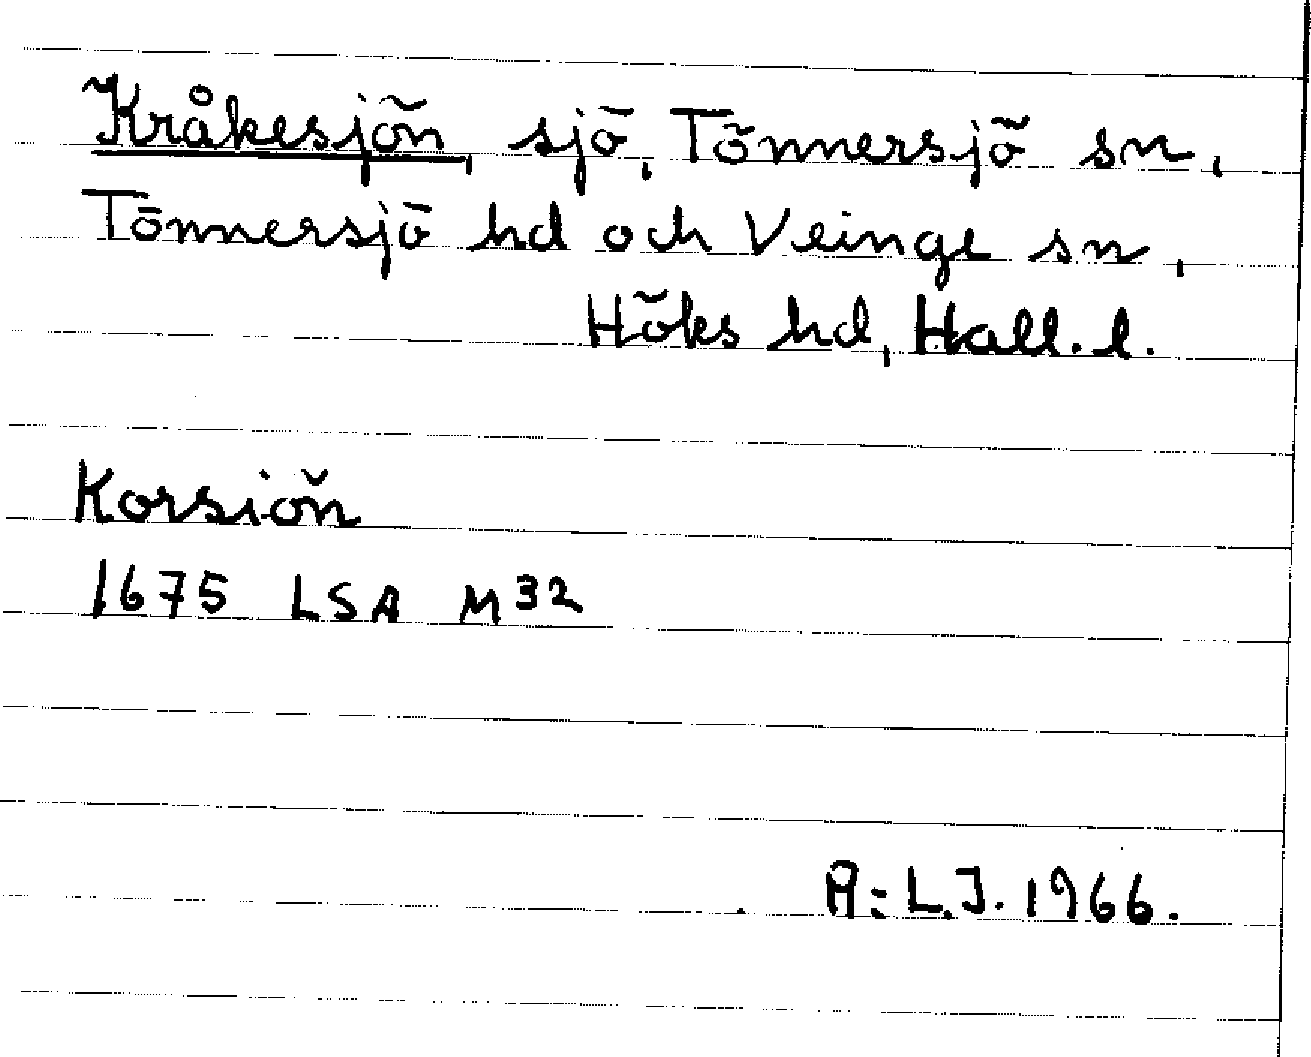 Kråkesjön, sjö, Tönnersjö sn,
Tönnersjö hd och Veinge sn,
Höks hd, Hall. l.
Korsiön
1675 LSA M32
A:L.J. 1966.